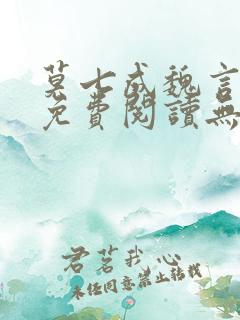 莫七成魏言
免費閱讀無
君茗我心
未经同意禁止转载